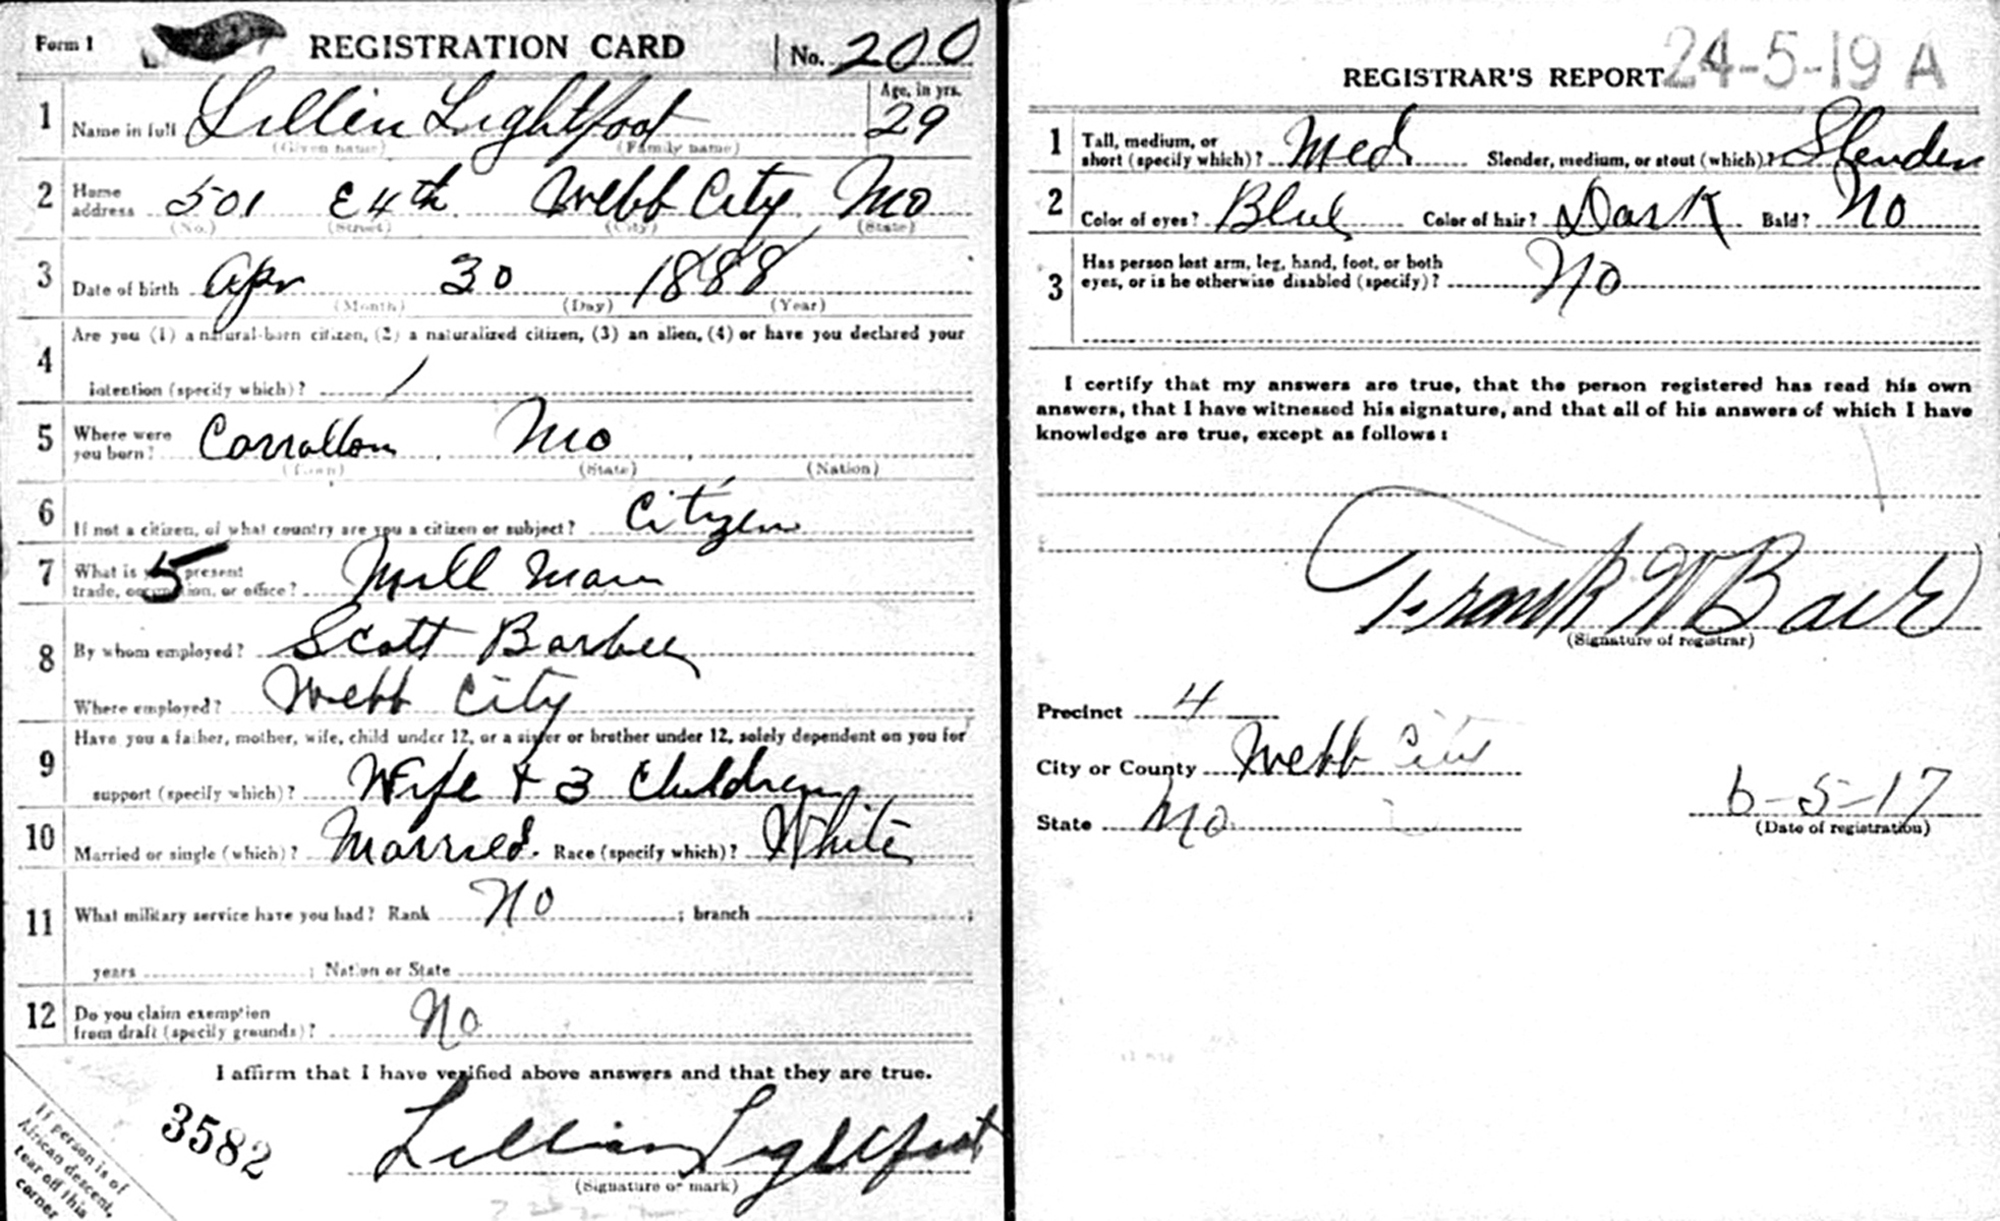 Form 1 REGISTRATION CARD No. 200
1 Name in full Lillian Lightfoot Age, in yrs. 29
(Given name) (Family name)
2 Home address 501 E 4th Webb City Mo
(No.) (Street) (City) (State)
3 Date of birth Apr 30 1888
(Month) (Day) (Year)
4 Are you (1) a natural-born citizen, (2) a naturalized citizen, (3) an alien, (4) or have you declared your
intention (specify which)? 1
5 Where were you born? Carrollton, Mo
(Town) (State) (Nation)
6 If not a citizen, of what country are you a citizen or subject? Citizen
7 What is your present
trade, occupation, or office? Mill Man
5
8 By whom employed? Scott Barbee
Where employed? Webb City
9 Have you a father, mother, wife, child under 12, or a sister or brother under 12, solely dependent on you for
support (specify which)? Wife + 3 Children
10 Married or single (which)? Married. Race (specify which)? White
11 What military service have you had? Rank No ; branch ;
years ; Nation or State
12 Do you claim exemption
from draft (specify grounds)? No
I affirm that I have verified above answers and that they are true.
3582
Lillian Lightfoot
(Signature or mark)
If person is of
African descent,
tear off this
corner
REGISTRAR'S REPORT 24-5-19 A
1 Tall, medium, or
short (specify which)? Med Slender, medium, or stout (which)? Slender
2 Color of eyes? Blue Color of hair? Dark Bald? No
3 Has person lost arm, leg, hand, foot, or both
eyes, or is he otherwise disabled (specify)? No
I certify that my answers are true, that the person registered has read his own
answers, that I have witnessed his signature, and that all of his answers of which I have
knowledge are true, except as follows:
Frank W Bair
(Signature of registrar)
Precinct 4
City or County Webb City
State Mo 6-5-17
(Date of registration)